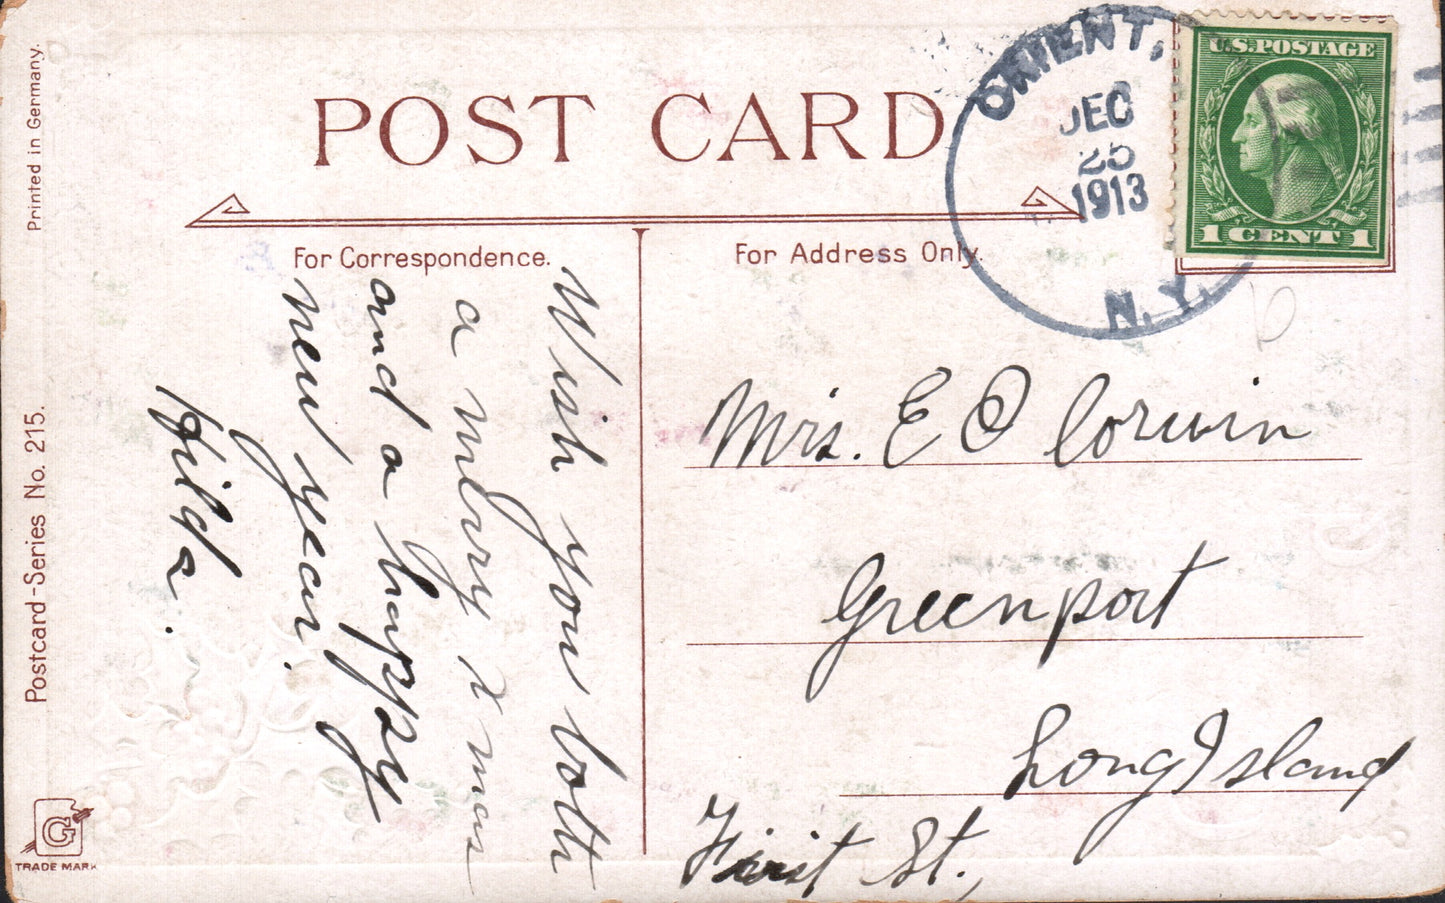 POST CARD
ORIENT,
DEC
25
1913
N.Y.
U.S.POSTAGE
1 CENT 1
For Correspondence.
For Address Only.
Wish you both
a merry xmas
and a happy
new year.
Hilda.
Mrs. E C Corwin
Greenport
Long Island
First St.,
Printed in Germany.
Postcard-Series No. 215.
G
TRADE MARK